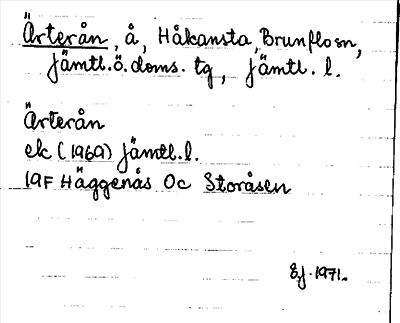 Ärterån, å, Håkansta, Brunflo sn,
Jämtl. ö. doms. tg, Jämtl. l.
Ärterån
ek (1969) Jämtl. l.
19F Häggenås Oc Storåsen
EJ. 1971.